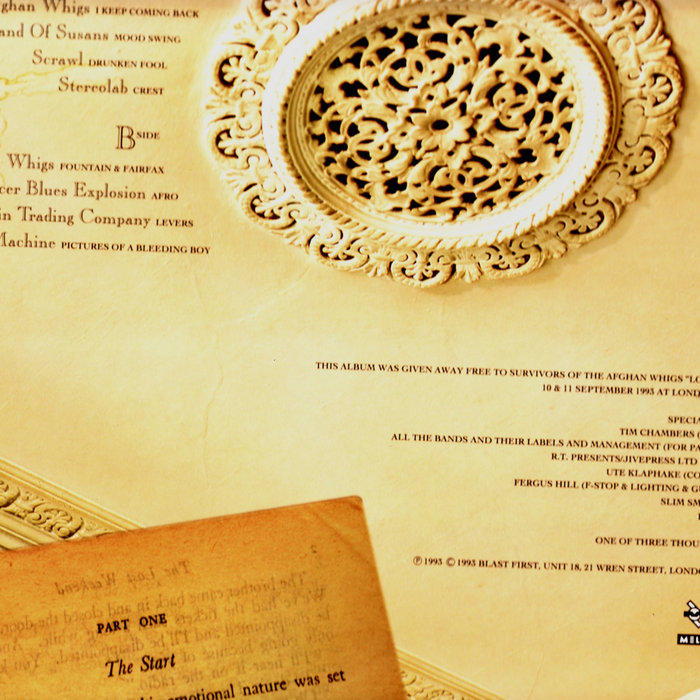 ghan Whigs I KEEP COMING BACK
and Of Susans MOOD SWING
Scrawl DRUNKEN FOOL
Stereolab CREST
B SIDE
Whigs FOUNTAIN & FAIRFAX
cer Blues Explosion AFRO
in Trading Company LEVERS
Machine PICTURES OF A BLEEDING BOY
THIS ALBUM WAS GIVEN AWAY FREE TO SURVIVORS OF THE AFGHAN WHIGS "LO
10 & 11 SEPTEMBER 1993 AT LOND
SPECIA
TIM CHAMBERS (
ALL THE BANDS AND THEIR LABELS AND MANAGEMENT (FOR PA
R.T. PRESENTS/JIVEPRESS LTD
UTE KLAPHAKE (CO
FERGUS HILL (F-STOP & LIGHTING & G
SLIM SM
ONE OF THREE THOU
℗ 1993 © 1993 BLAST FIRST, UNIT 18, 21 WREN STREET, LONDO
MEL
2
The Lost Weekend
The brother came back in and closed the door
PART ONE
The Start
emotional nature was set